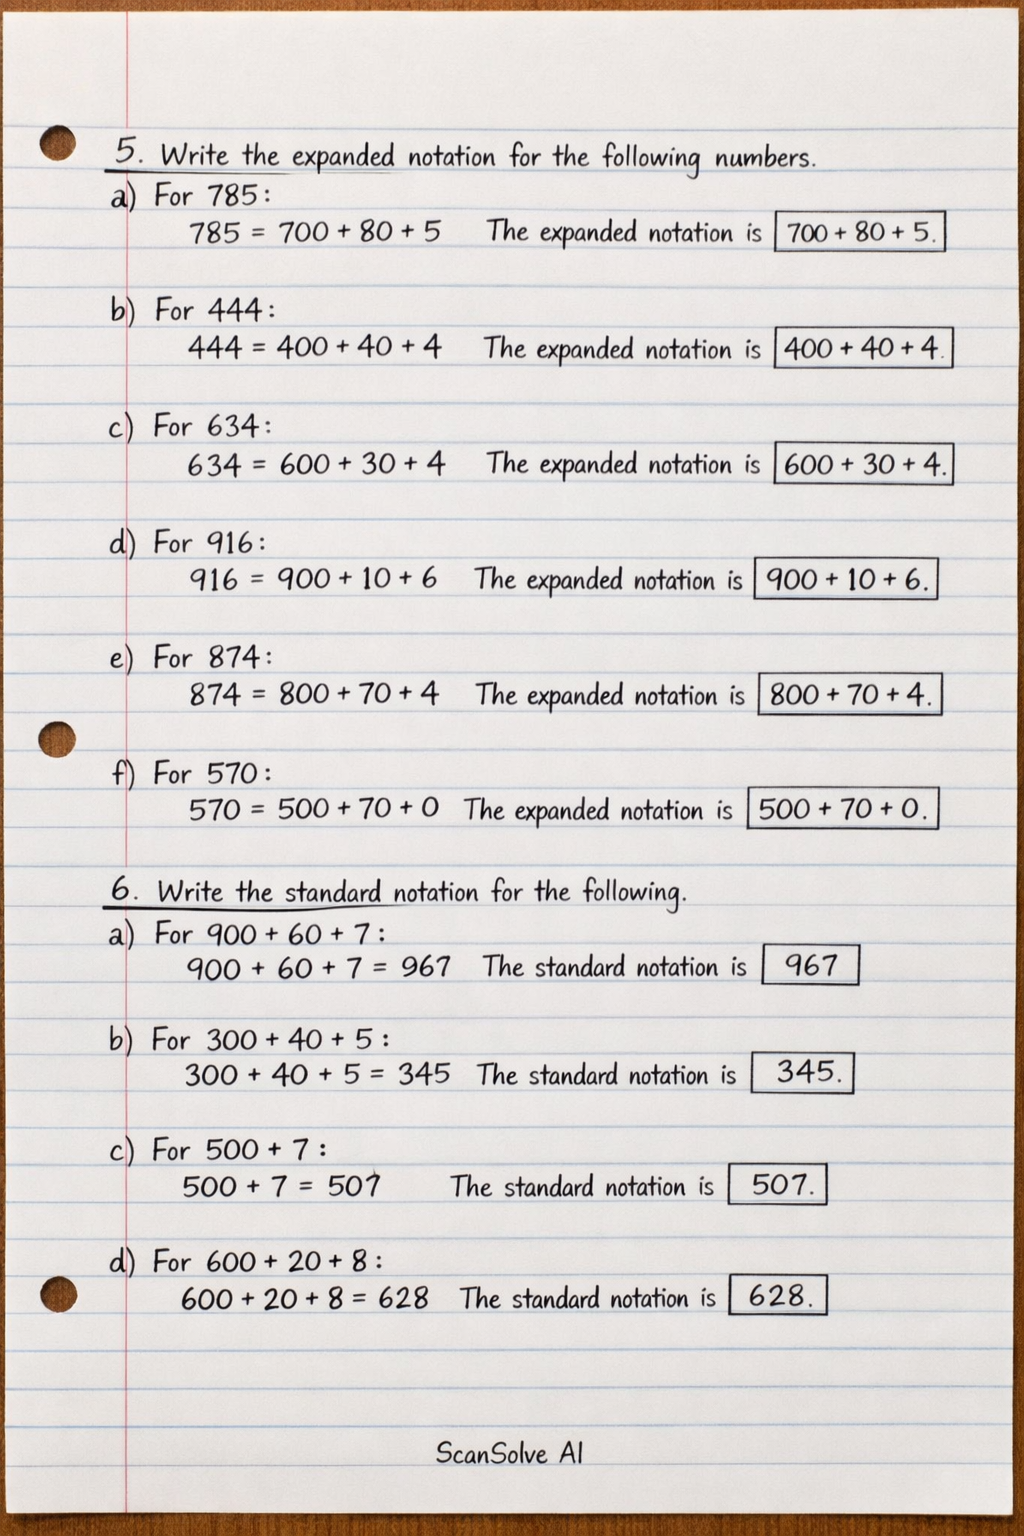 5. Write the expanded notation for the following numbers.
a) For 785:
785 = 700 + 80 + 5 The expanded notation is 700 + 80 + 5.
b) For 444:
444 = 400 + 40 + 4 The expanded notation is 400 + 40 + 4.
c) For 634:
634 = 600 + 30 + 4 The expanded notation is 600 + 30 + 4.
d) For 916:
916 = 900 + 10 + 6 The expanded notation is 900 + 10 + 6.
e) For 874:
874 = 800 + 70 + 4 The expanded notation is 800 + 70 + 4.
f) For 570:
570 = 500 + 70 + 0 The expanded notation is 500 + 70 + 0.
6. Write the standard notation for the following.
a) For 900 + 60 + 7:
900 + 60 + 7 = 967 The standard notation is 967
b) For 300 + 40 + 5:
300 + 40 + 5 = 345 The standard notation is 345.
c) For 500 + 7:
500 + 7 = 507 The standard notation is 507.
d) For 600 + 20 + 8:
600 + 20 + 8 = 628 The standard notation is 628.
ScanSolve AI